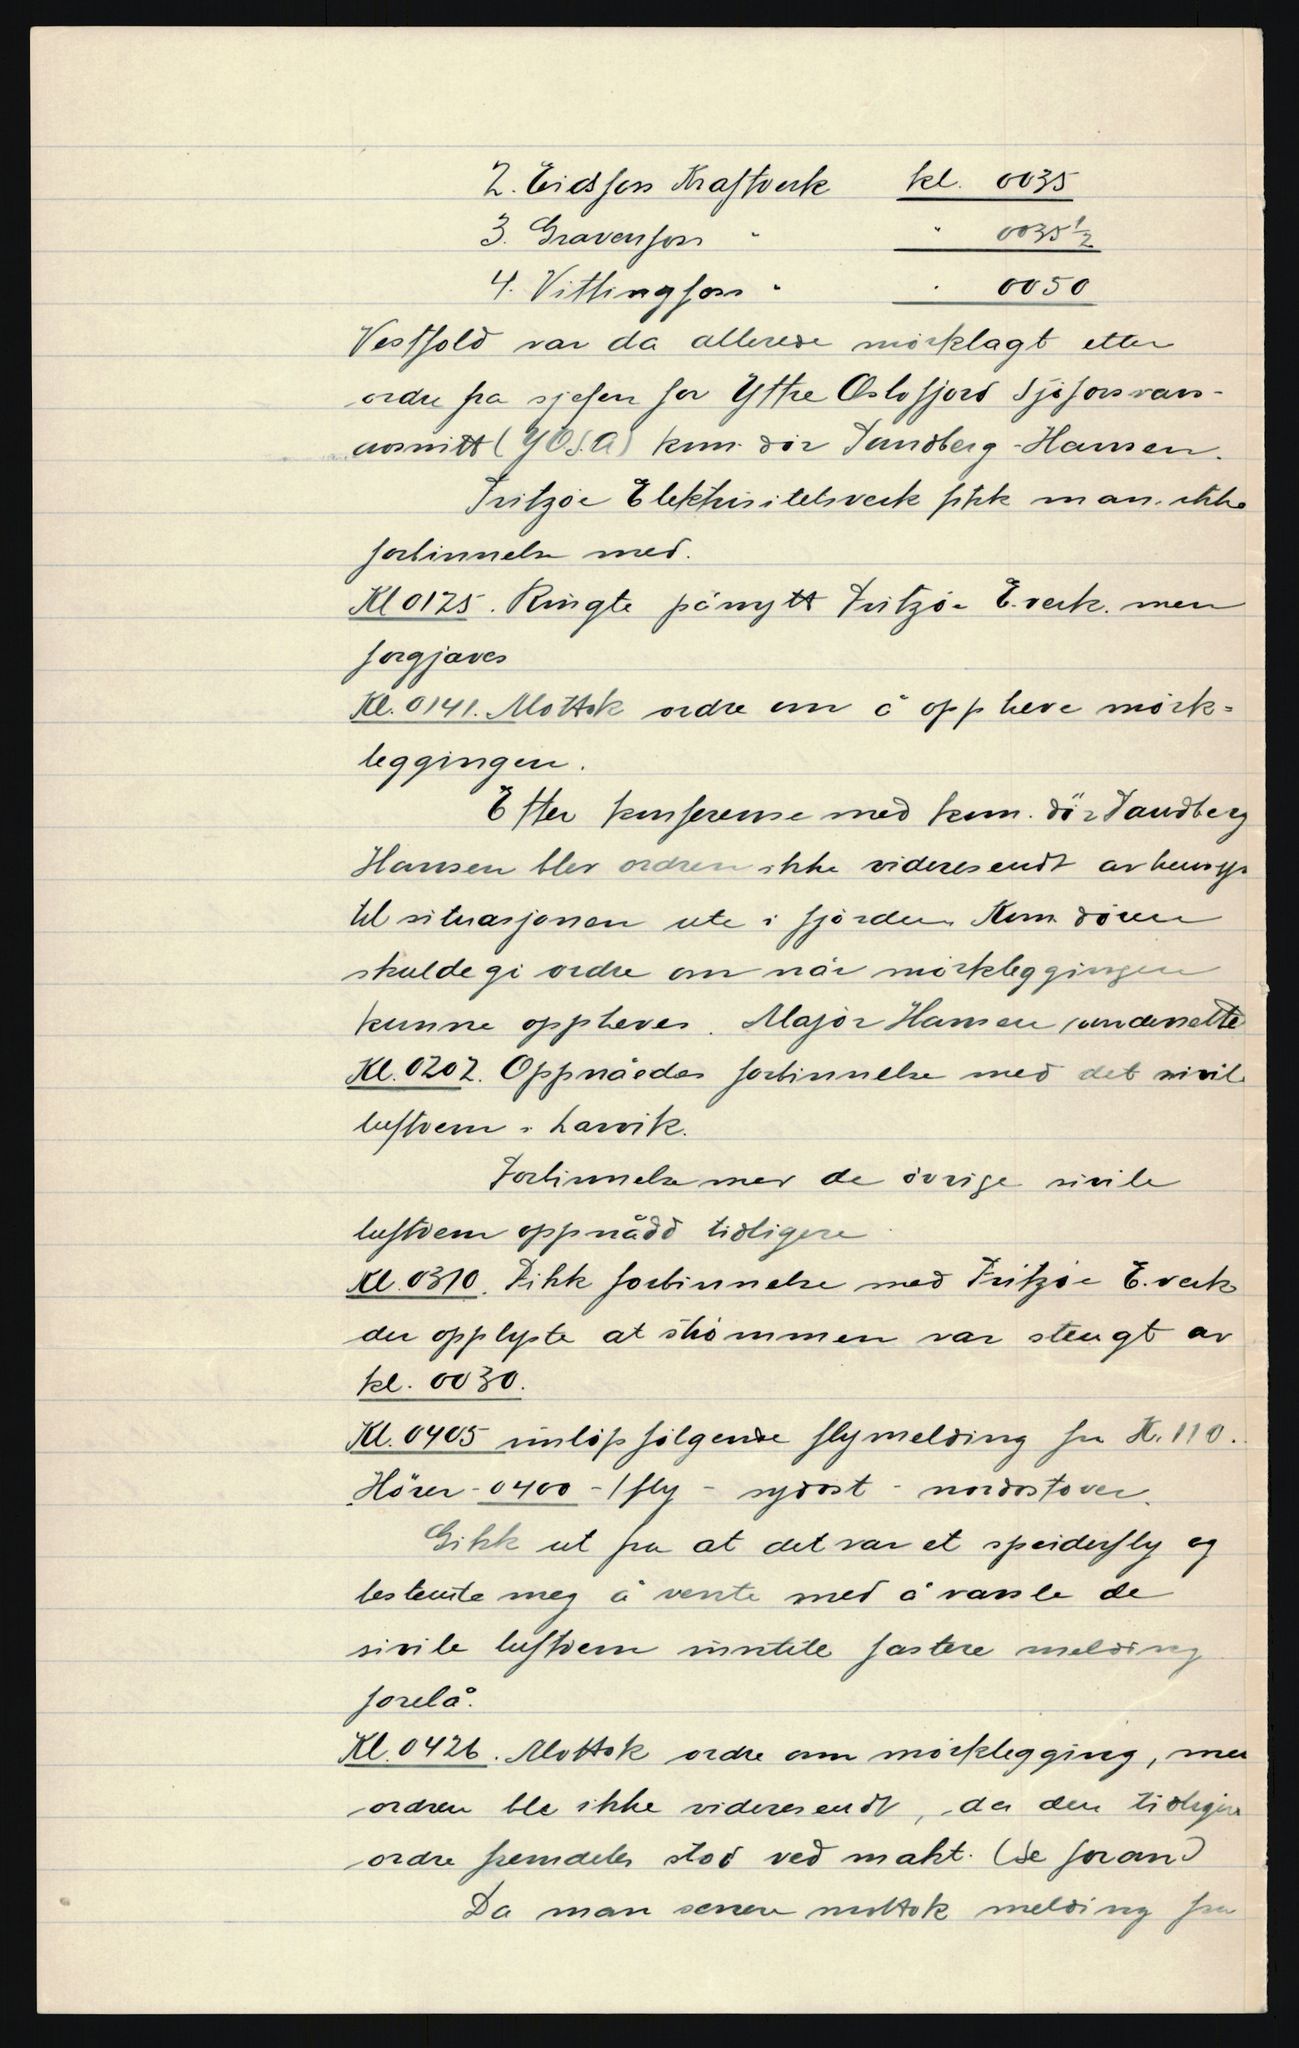 2. Eidsfoss Kraftverk kl. 0035
3. Gravenfoss " " 0035 1/2
4. Vittingfoss " " 0050
Vestfold var da allerede mørklagt etter
ordre fra sjefen for Ytre Oslofjord Sjøforsvars-
avsnitt (YOSA) kom. dør Tandberg-Hansen.
Fritzøe Elektrisitetsverk fikk man ikke
forbinnelse med.
Kl 0125. Ringte pånytt Fritzøe E.verk. men
forgjæves
Kl. 0141. Mottok ordre om å oppheve mørk-
leggingen.
Efter konferense med kom. dør Tandberg
Hansen blev ordren ikke videresendt av hensyn
til situasjonen ute i fjorden. Kom døren
skulde gi ordre om når mørkleggingen
kunne oppheves. Major Hansen underrettet
Kl. 0202. Oppnåedes forbinnelse med det sivile
luftvern i Larvik.
Forbinnelse med de øvrige sivile
luftvern oppnådd tidligere
Kl. 0310. Fikk forbinnelse med Fritzøe E.verk
der opplyste at strømmen var stengt av
kl. 0030.
Kl. 0405 innløp følgende flymelding fra K. 110.
Hører - 0400 - 1 fly - sydost - nordostover.
Gikk ut fra at det var et speiderfly og
bestemte meg å vente med å varsle de
sivile luftvern inntile fastere melding
forelå.
Kl. 0426. Mottok ordre om mørklegging, men
ordren ble ikke videresendt, da den tidligere
ordre fremdeles stod ved makt. (Se foran)
Da man senere mottok melding fra